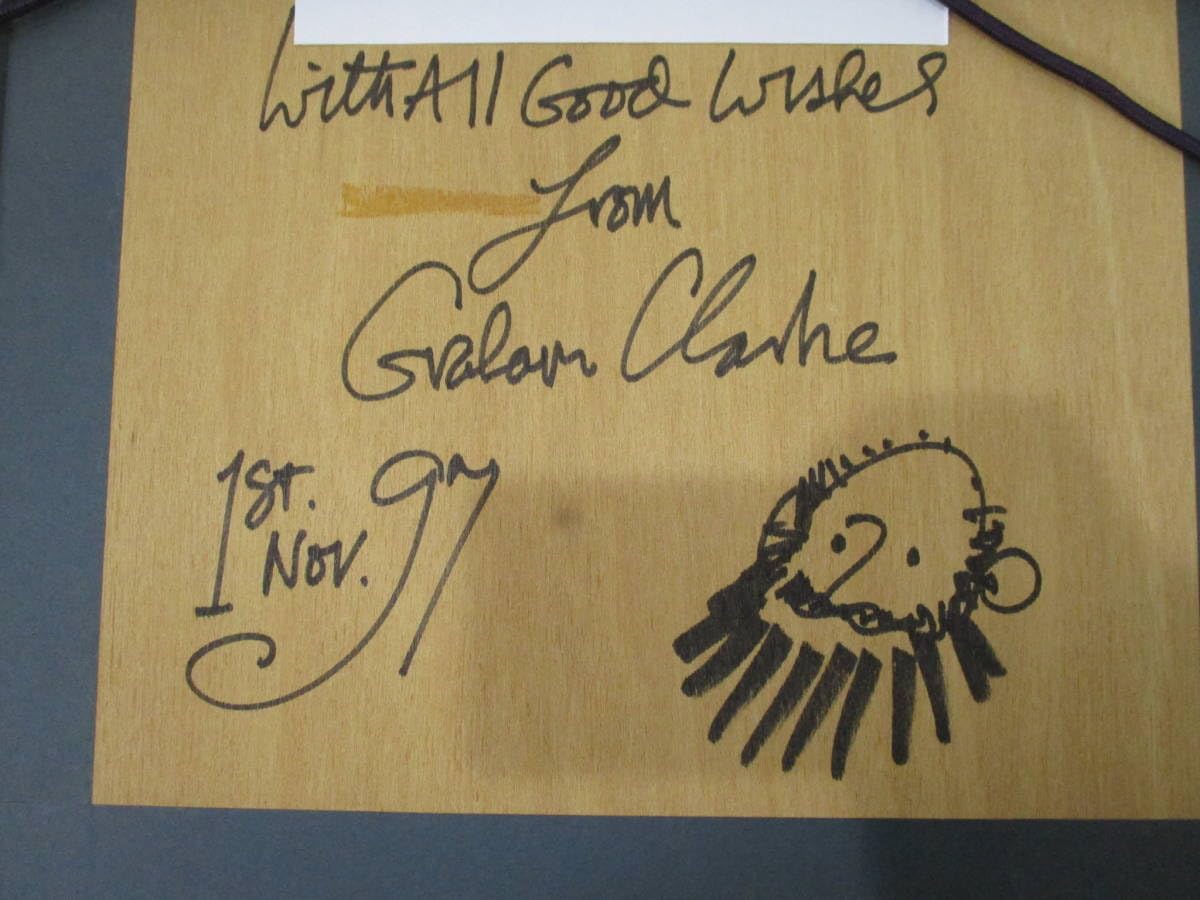 With All Good Wishes
from
Graham Clarke
1st.
Nov. 97